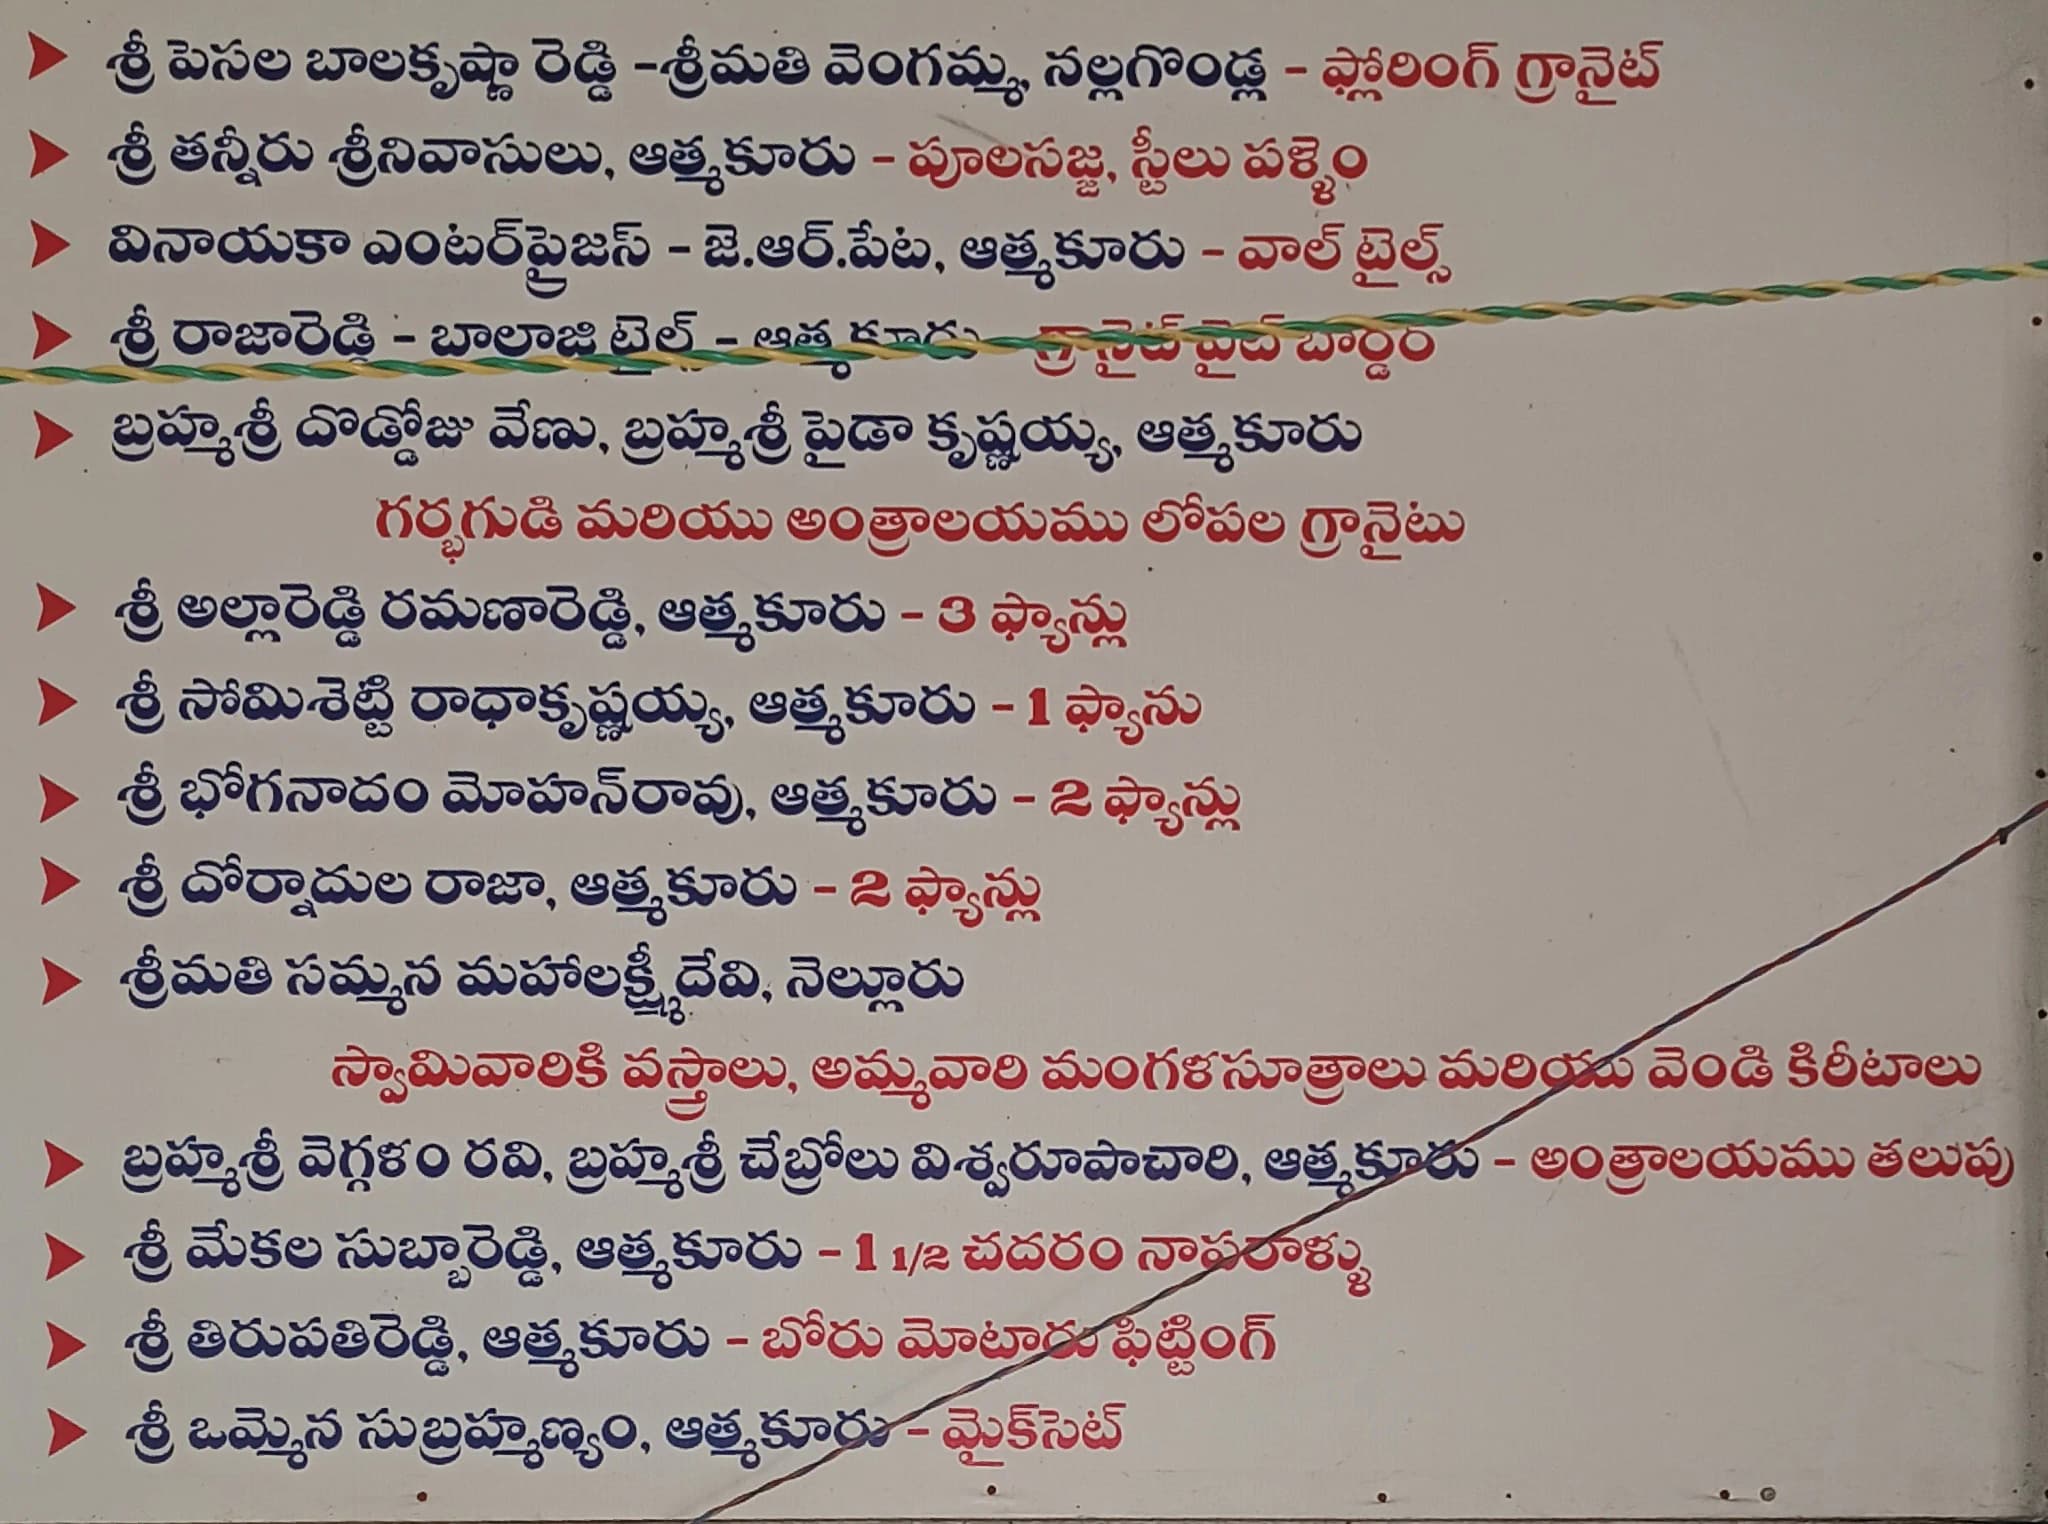 శ్రీ పెసల బాలకృష్ణా రెడ్డి -శ్రీమతి వెంగమ్మ, నల్లగొండ్ల - ఫ్లోరింగ్ గ్రానైట్
శ్రీ తన్నీరు శ్రీనివాసులు, ఆత్మకూరు - పూలసజ్జ, స్టీలు పళ్ళెం
వినాయకా ఎంటర్‌ప్రైజస్ - జె.ఆర్.పేట, ఆత్మకూరు - వాల్ టైల్స్
శ్రీ రాజారెడ్డి - బాలాజి టైల్స్ - ఆత్మకూరు - గ్రానైట్ వైట్ బార్డరం
బ్రహ్మశ్రీ దొడ్డోజు వేణు, బ్రహ్మశ్రీ పైడా కృష్ణయ్య, ఆత్మకూరు
గర్భగుడి మరియు అంత్రాలయము లోపల గ్రానైటు
శ్రీ అల్లారెడ్డి రమణారెడ్డి, ఆత్మకూరు - 3 ఫ్యాన్లు
శ్రీ సోమిశెట్టి రాధాకృష్ణయ్య, ఆత్మకూరు - 1 ఫ్యాను
శ్రీ భోగనాదం మోహన్‌రావు, ఆత్మకూరు - 2 ఫ్యాన్లు
శ్రీ దోర్నాదుల రాజా, ఆత్మకూరు - 2 ఫ్యాన్లు
శ్రీమతి సమ్మన మహాలక్ష్మీదేవి, నెల్లూరు
స్వామివారికి వస్త్రాలు, అమ్మవారి మంగళసూత్రాలు మరియు వెండి కిరీటాలు
బ్రహ్మశ్రీ వెగ్గళం రవి, బ్రహ్మశ్రీ చేబ్రోలు విశ్వరూపాచారి, ఆత్మకూరు - అంత్రాలయము తలుపు
శ్రీ మేకల సుబ్బారెడ్డి, ఆత్మకూరు - 1 1/2 చదరం నాపరాళ్ళు
శ్రీ తిరుపతిరెడ్డి, ఆత్మకూరు - బోరు మోటారు ఫిట్టింగ్
శ్రీ ఒమ్మెన సుబ్రహ్మణ్యం, ఆత్మకూరు - మైక్‌సెట్